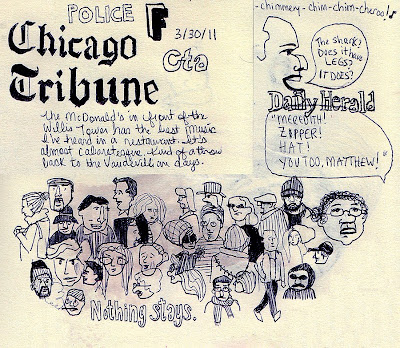 POLICE
F
3/30/11
Chicago
Cta
Tribune
The McDonald's in front of the
Willis Tower has the best music
I've heard in a restaurant. It's
almost Cabaretesque. Kind of a throw
back to the Vaudevillian days.
-chimmery-chim-chim-cheroo!
The shark?
Does it have
LEGS?
IT DOES?
Daily Herald
"MEREDITH!
ZIPPER!
HAT!
YOU TOO, MATTHEW!"
Nothing stays.